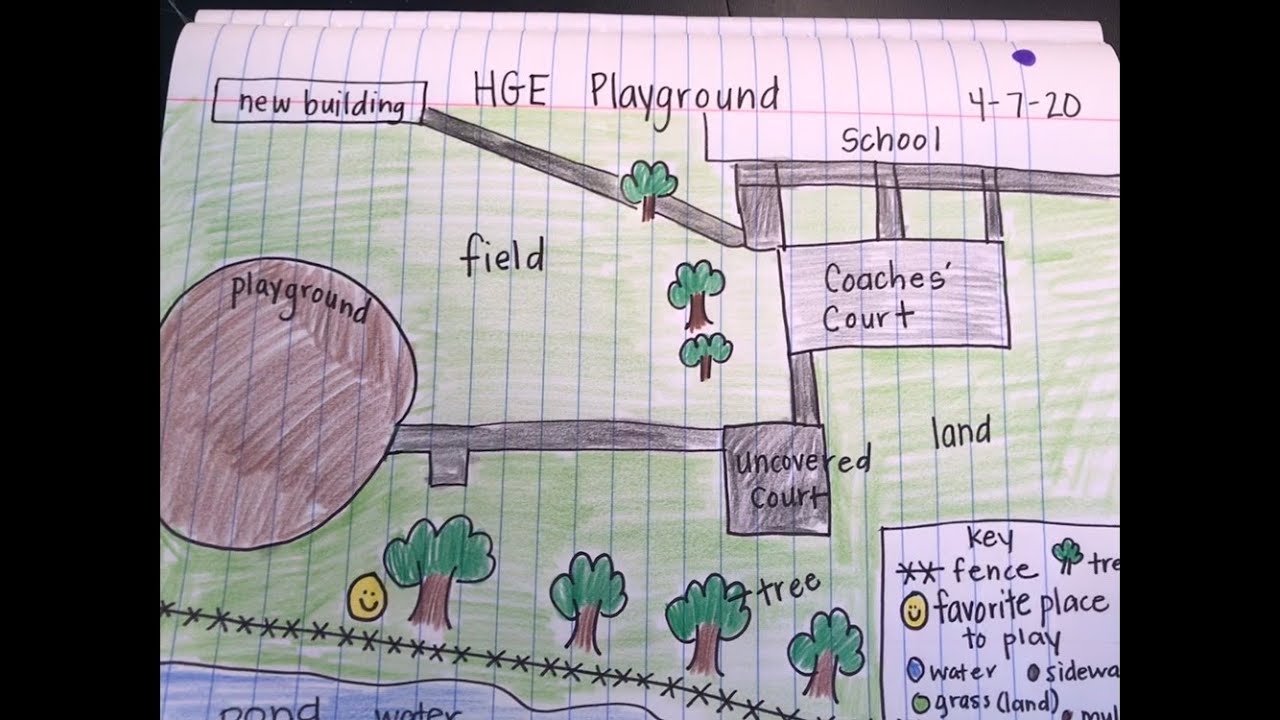 HGE Playground
new building
4-7-20
School
field
playground
Coaches'
Court
land
uncovered
Court
tree
key
fence
tre
favorite place
to play
water
sidewa
grass (land)
mul
pond water